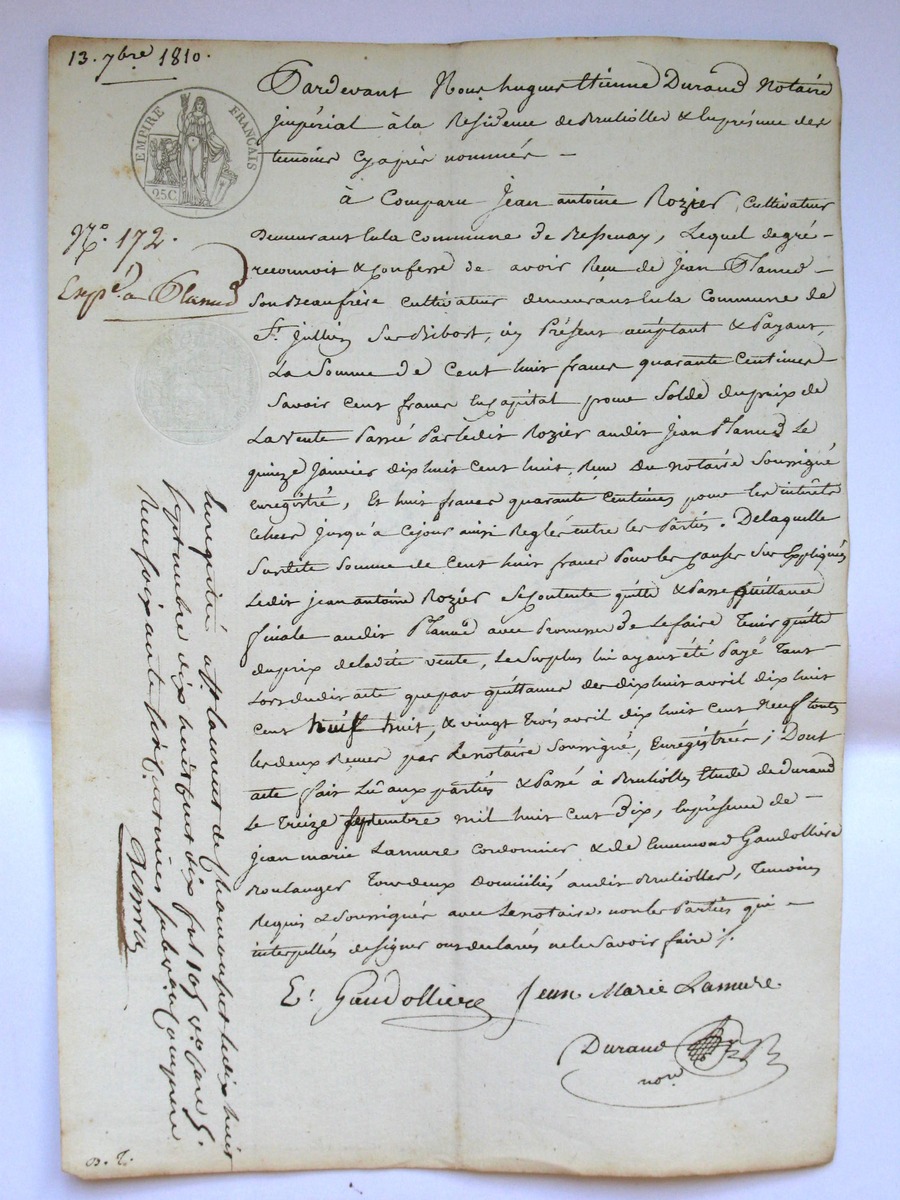 13. 7bre 1810.
EMPIRE FRANÇAIS
25C.
No. 172.
Expé. a Plamed
Pardevant Nous hugues Etienne Durand Notaire
impérial à la Résidence de Brulliolles & en présence des
temoins cyaprès nommés —
à Comparu Jean antoine Rozier, Cultivateur
demeurant en la commune de Bessenay, Lequel degré —
reconnoit & confesse de avoir Reçu de Jean
Son Beaufrère cultivateur demeurant en la Commune de
St. Jullien Sur Bibost, ici Présent acceptant & Payant,
La Somme de Cent huit francs quarante Centimes
Savoir cent francs en capital pour Solde du prix de
La vente Passée Par ledit Rozier audit Jean Le
quinze Janvier dix huit cent huit, Reçu Du notaire Soussigné
Enregistré, Et huit francs quarante Centimes pour les intérêts
jusqu'a cejour ainsi Reglé entre les Parties. Delaquelle
Susdite Somme de Cent huit francs Pour les causes Sus Expliquées
Ledit jean antoine Rozier Se contente quitte & Passe quittance
finale audit avec Promesse de Le faire Tenir quitte
du prix deladite vente, Le Surplus lui ayant été Payé Tant
Lors dudit acte que par quittances des dix huit avril dix huit
cent huit, & vingt Trois avril dix huit Cent Neuf touts
les deux Reçues par Le notaire Soussigné, Enregistrées; Dont
acte fait Lû aux parties & Passé à Brulliolles Etude de Durand
Le Treize Septembre mil huit Cent Dix, En présence de —
Jean marie Lamure cordonnier & de Gaudolliere
Boulanger Tous deux Domiciliés audit Brulliolles, Temoins
Requis & Soussignés avec Le notaire, non les Parties qui —
interpellées designer ont declarés ne le Savoir faire ;.
E. Gaudolliere Jean Marie Lamure.
Durand
nore
Enregistré à St laurent de Chamousset le dix huit
Septembre dix huit cent dix fol 105
Reçu soixante
D. T.